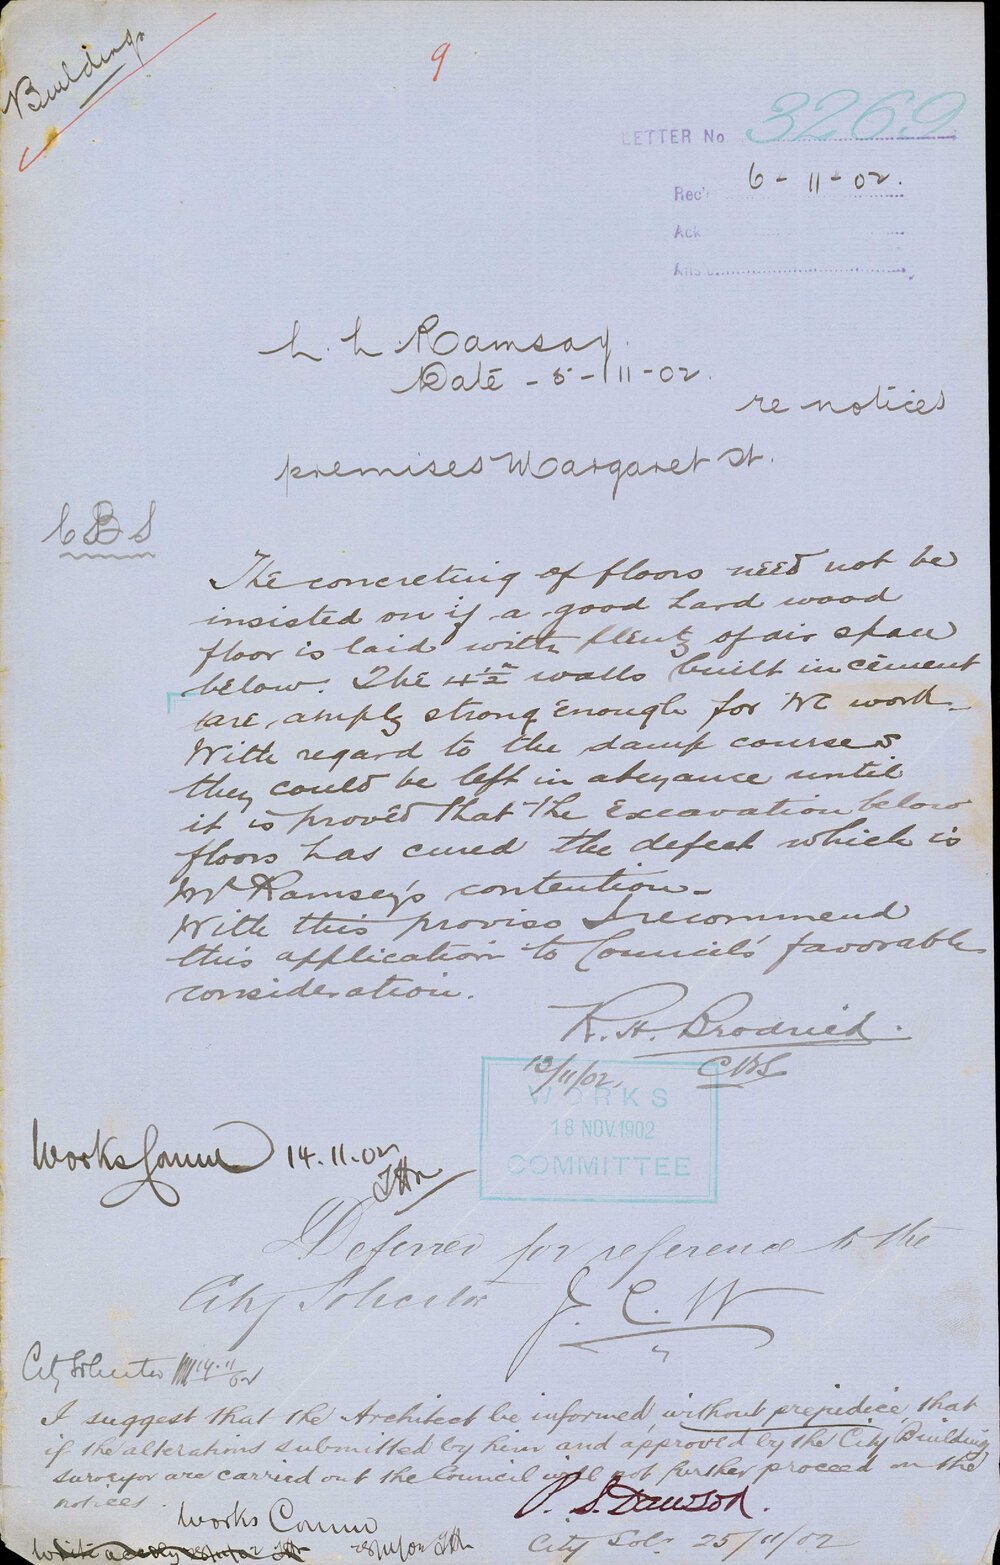 Buildings
9
LETTER No 3269
Rec'd 6-11-02.
Ack
Ans
L. L. Ramsay.
Date - 5-11-02.
re notices
premises Margaret St.
CBS
The concreting of floors need not be
insisted on if a good hard wood
floor is laid with plenty of air space
below. The 4½" walls built in cement
are amply strong enough for WC work.
With regard to the damp courses
they could be left in abeyance until
it is proved that the excavation below
floors has cured the defect which is
Mr Ramsey's contention.
With this proviso I recommend
this application to Council's favorable
consideration.
R. H. Brodrick.
CBS
13/11/02.
WORKS
18 NOV. 1902
COMMITTEE
Works Comm 14.11.02
THn
Deferred for reference to the
City Solicitor J. C. W
City Solicitor
I suggest that the Architect be informed, without prejudice, that
if the alterations submitted by him and approved by the City Building
surveyor are carried out the Council will not further proceed on the
notices.
P. S. Dawson.
City Solr 25/11/02
Works Comm
28/11/02 THn